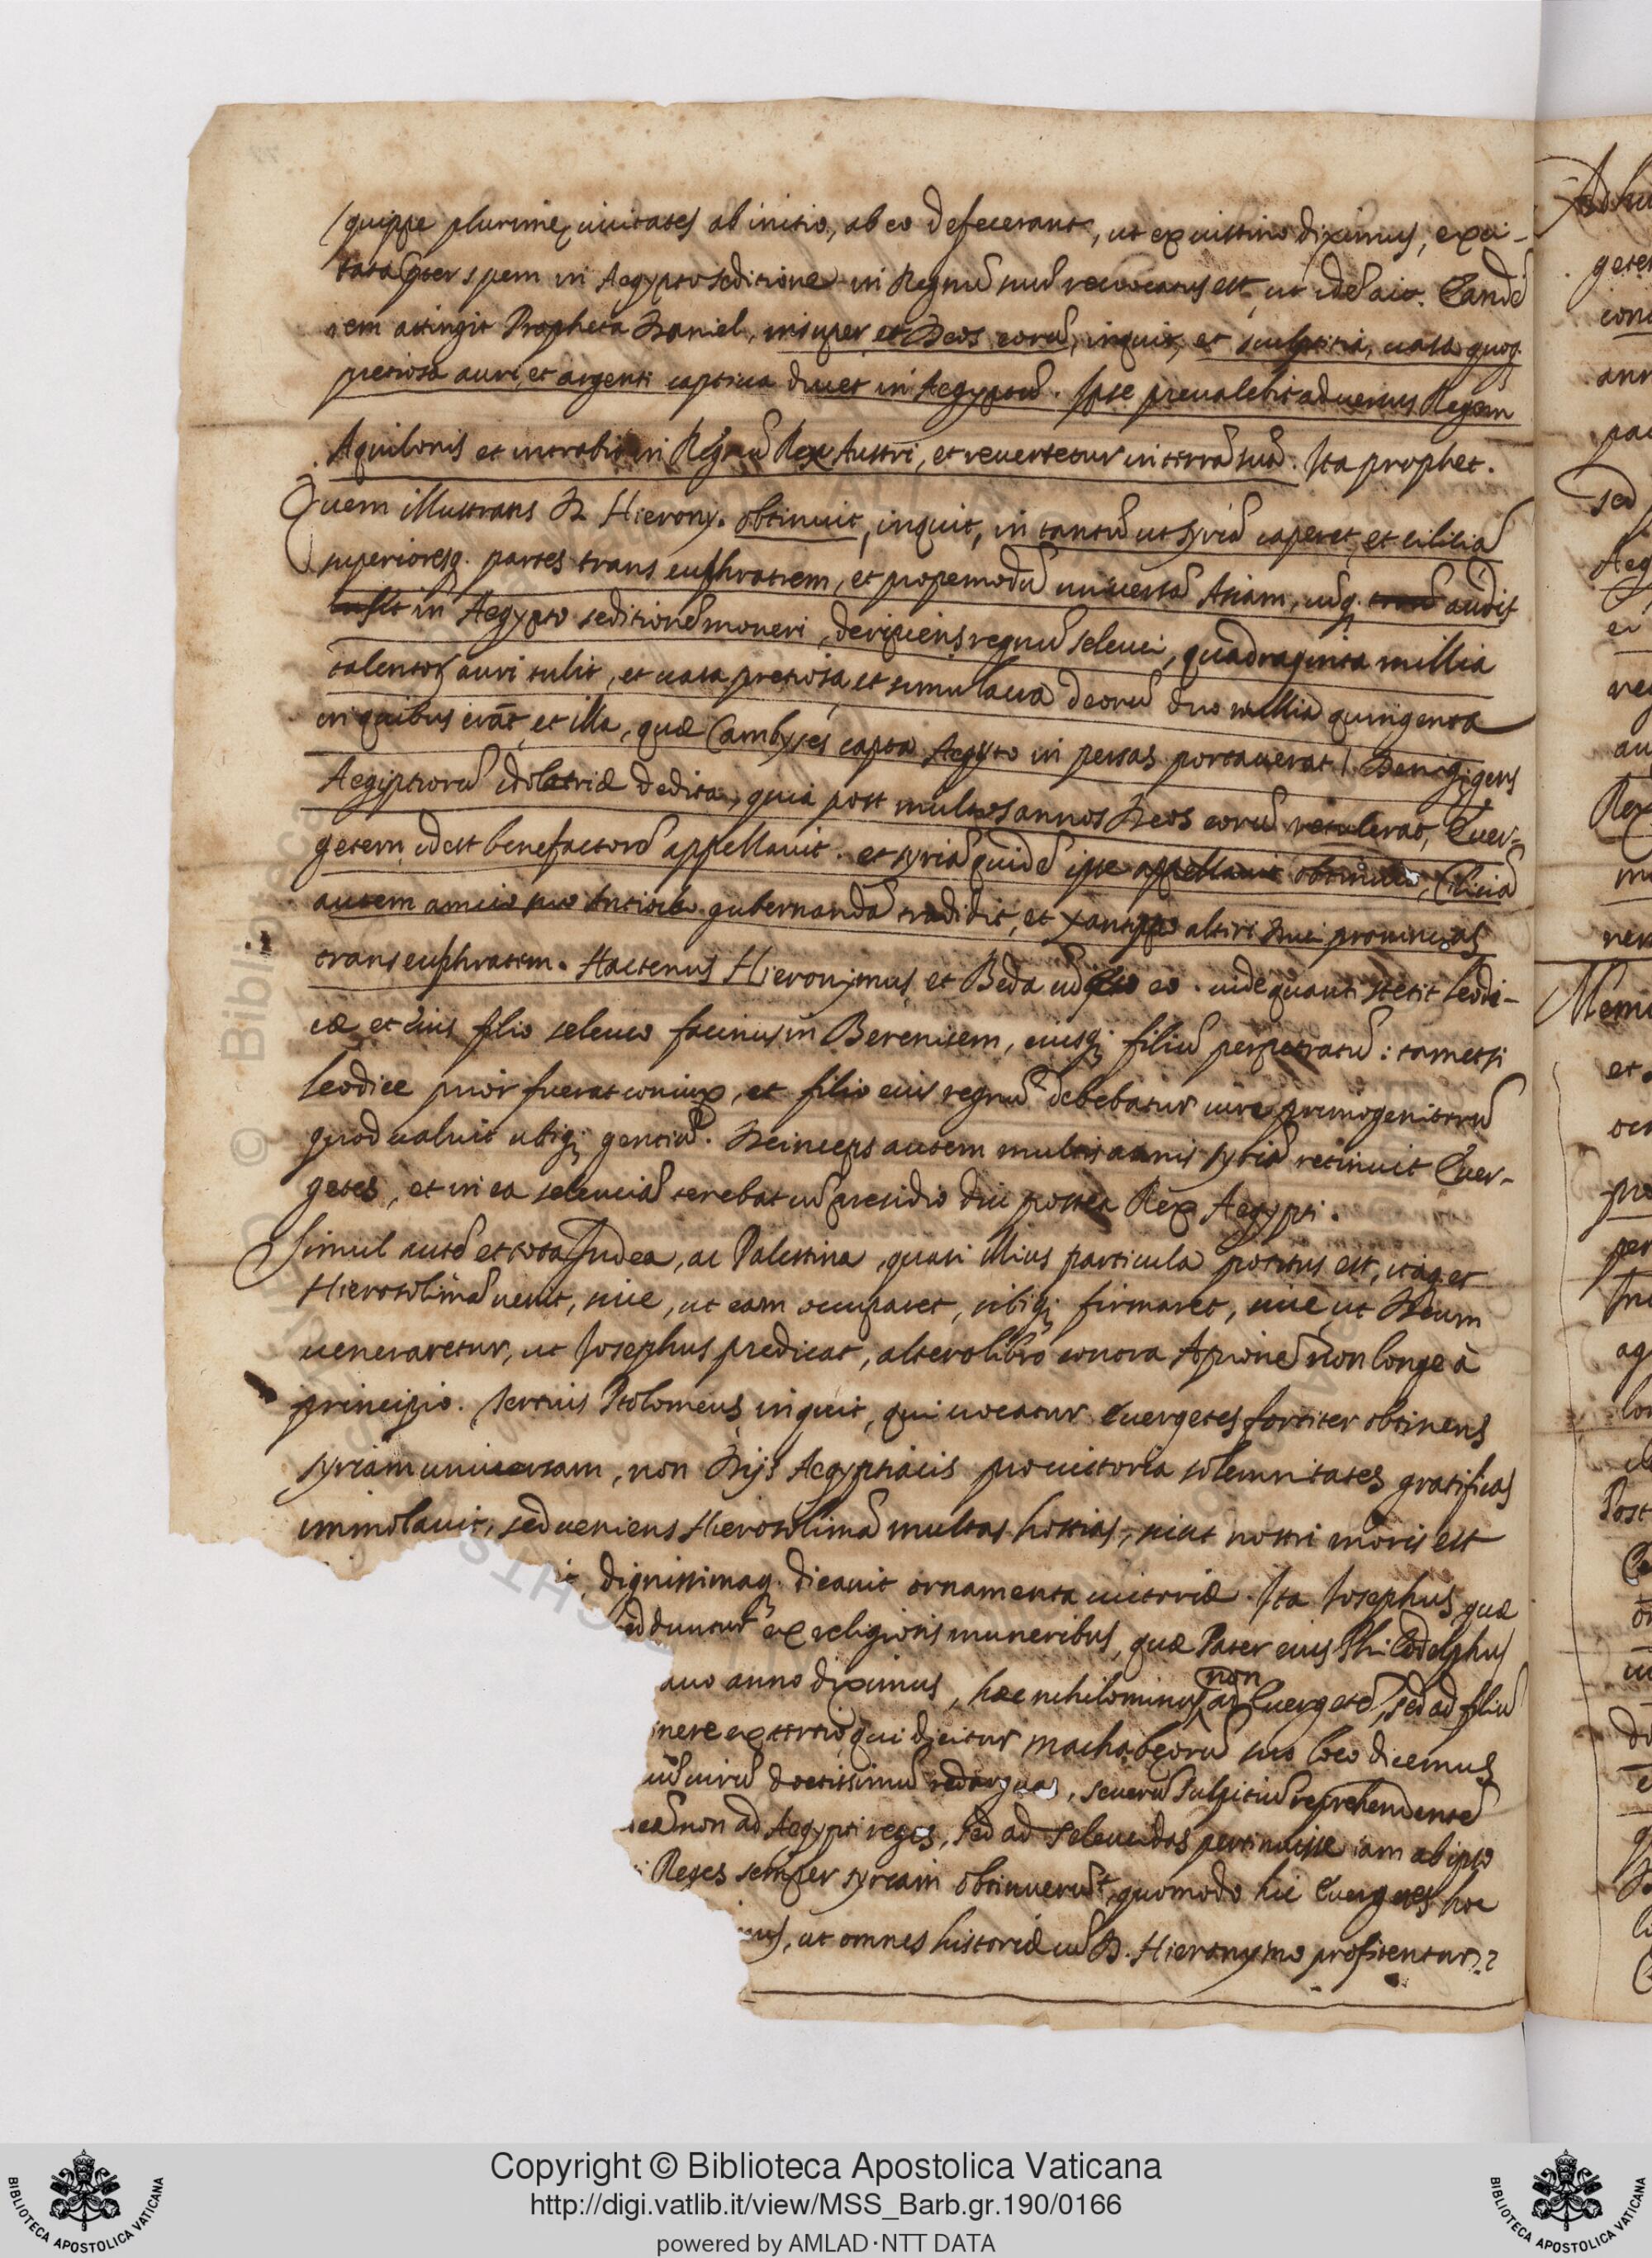 (quippe plurimę ciuitates ab initio, ab eo defecerant, ut ex iustino diximus, exci-
tata preter spem in Aegypto seditione in Regnũ suũ reuocatus est ut idẽ ait. Eandẽ
rem attingit Propheta Daniel, insuper et Deos eorũ, inquit, et sculptilia, uasa quoq.
pretiosa auri, et argenti captiua ducet in Aegyptũ. Ipse preualebit aduersus Regem
Aquilonis et intrabit in Regnũ Rex Austri, et reuertetur in terrã suã. Ita prophet.
Quem illustrans D. Hierony. obtinuit, inquit, in tantũ ut syriã caperet, et ciliciã
superioresq. partes trans euphratem, et propemodũ uniuersã Asiam, cũq. audis
in Aegypto seditionẽ moueri, deripiens regnũ seleuci, quadraginta millia
talentorũ auri tulit, et uasa pretiosa, et simulacra deorũ duo millia quingenta
in quibus erãt et illa, quæ Cambyses capta Aegypto in persas portauerat. Deniq; gens
Aegiptiorũ idolatriæ dedita, quia post multos annos Deos eorũ retulerat, Euer-
getem id est benefactorẽ appellauit. et syriã quidẽ ipse obtinuit, Ciliciã
autem amico suo Antiocho gubernandã tradidit, et xantippo alteri Duci prouincias
trans euphratem. Hactenus Hieronymus, et Beda cũ eo. uide quanti stetit leodi-
cæ et eius filio seleuco facinus in Berenicem, eiusq; filiũ perpetratũ: tametsi
leodice prior fuerat coniux, et filio eius regnũ debebatur iure primogenitorũ
quod ualuit ubiq; gentiũ. Deinceps autem multis annis syriã retinuit Euer-
getes, et in ea seleuciã tenebat cũ presidio diu postea Rex Aegypti.
Simul autẽ et tota Iudea, ac Palestina, quasi illius particula potitus est, itaq. et
Hierosolimã uenit, siue, ut eam occuparet, sibiq; firmaret, siue, ut Deum
ueneraretur, ut Josephus predicat, altero libro contra Apionẽ non longe à
principio. Tertius Ptolomeus, inquit, qui uocatur Euergetes fortiter obtinens
syriam uniuersam, non Dijs Aegyptiacis pro uictoria solemnitates gratificas
immolauit, sed ueniens Hierosolimã multas hostias, sicut nostri moris est
dignissimaq. dicauit ornamenta uictoriæ. Ita Josephus, quæ
adduntur ex religiosis muneribus, quæ Pater eius Philadelphus
auo anno diximus, hæc nihilominus non ad Euergetẽ, sed ad filiũ
nere ex tertio qui dicitur machabęorũ suo loco dicemus
uirũ doctissimũ redarguas, seuerũ sulpitiũ reprehendentẽ
non ad Aegypti reges, sed ad seleucidas pertinuisse iam ab ipso
Reges semper syream obtinuerũt, quomodo hic Euergetes hoc
ut omnes historiæ cũ D. Hieronymo profitentur?
Copyright © Biblioteca Apostolica Vaticana
http://digi.vatlib.it/view/MSS_Barb.gr.190/0166
powered by AMLAD·NTT DATA
BIBLIOTECA APOSTOLICA VATICANA
BIBLIOTECA APOSTOLICA VATICANA